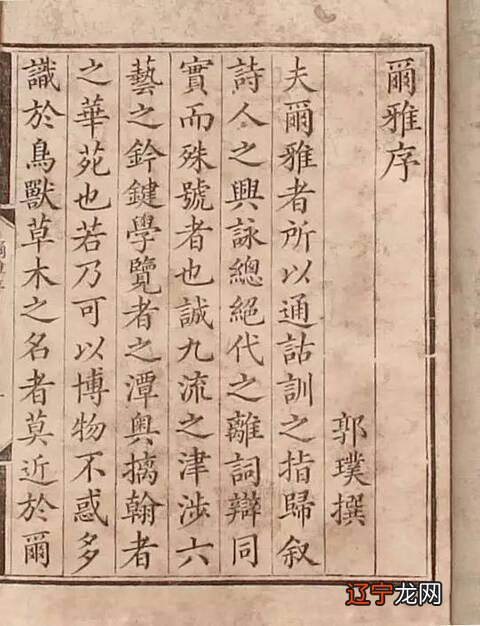 爾雅序
郭璞撰
夫爾雅者所以通詁訓之指歸叙
詩人之興詠總絕代之離詞辯同
實而殊號者也誠九流之津涉六
藝之鈐鍵學覽者之潭奧摛翰者
之華苑也若乃可以博物不惑多
識於鳥獸草木之名者莫近於爾
辽宁龙网